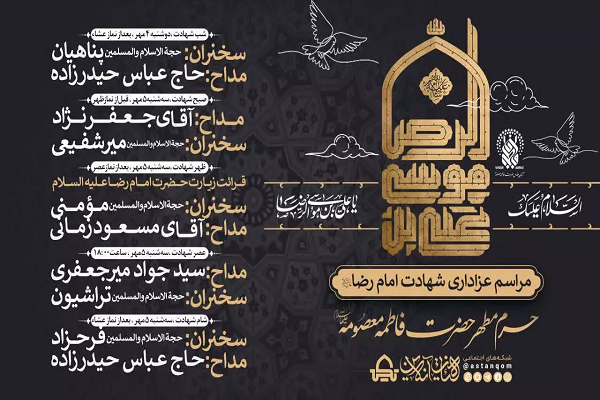 شب شهادت ،دوشنبه ۴ مهر ، بعداز نماز عشاء
سخنران: حجة الاسلام والمسلمین پناهیان
مداح: حاج عباس حیدرزاده
صبح شهادت ،سه‌شنبه ۵ مهر ، قبل از نماز ظهر
مداح: آقای جعفرنژاد
سخنران: حجة الاسلام والمسلمین میرشفیعی
ظهر شهادت ،سه‌شنبه ۵ مهر ، بعداز نماز عصر
قرائت زیارت حضرت امام رضا علیه السلام
سخنران: حجة الاسلام والمسلمین مؤمنی
مداح: آقای مسعود زمانی
عصر شهادت ،سه‌شنبه ۵ مهر ، ساعت ۱۸:۰۰
مداح: سید جواد میرجعفری
سخنران: حجة الاسلام والمسلمین تراشیون
شام شهادت ،سه‌شنبه ۵ مهر ، بعداز نماز عشاء
سخنران: حجة الاسلام والمسلمین فرحزاد
مداح: حاج عباس حیدرزاده
علی بن
موسی
الرضا
السلام علیک
یا علی بن موسی الرضا
مراسم عزاداری شهادت امام رضا
حرم مطهر حضرت فاطمه معصومه
شبکه‌های اجتماعی
@astanqom